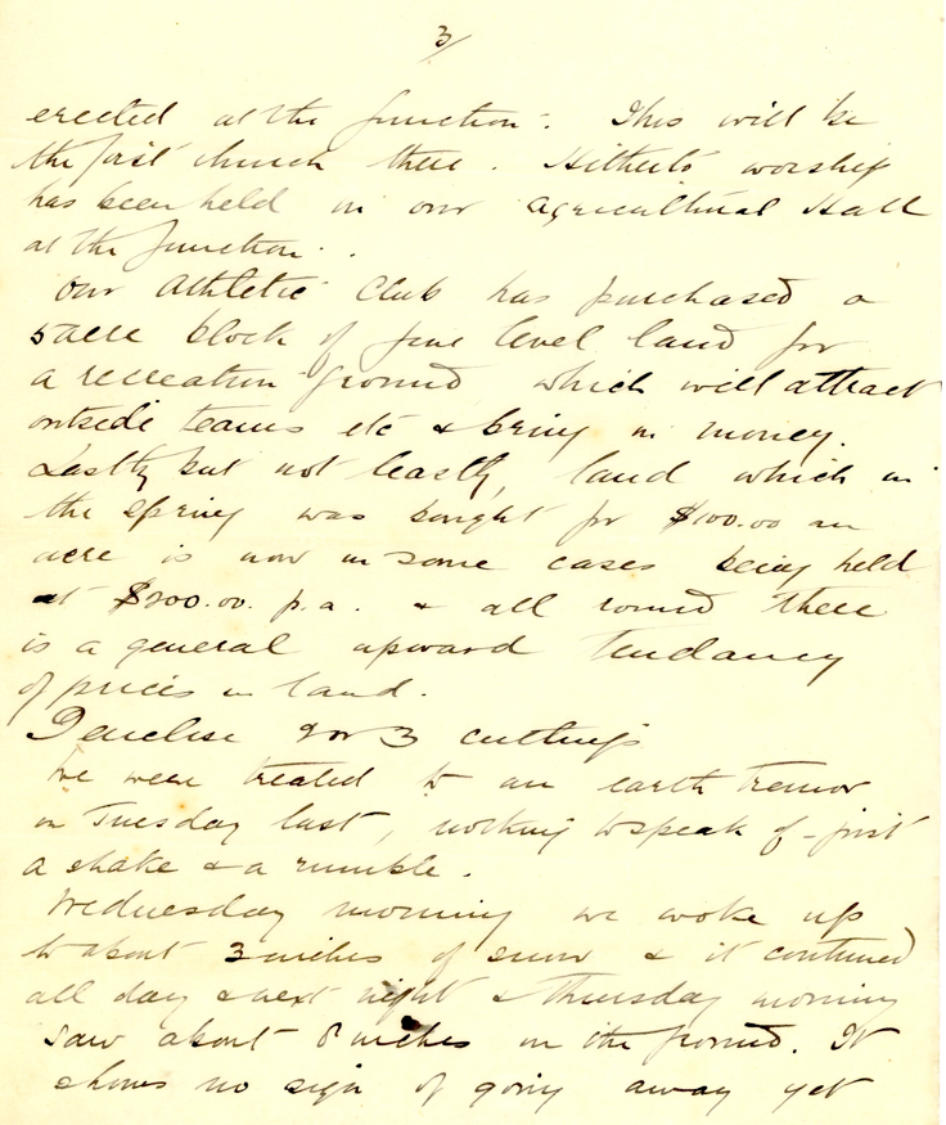 3/
erected at the junction. This will be
the first church there. Hitherto worship
has been held in our Agricultural Hall
at the junction.
Our Athletic Club has purchased a
5 acre block of fine level land for
a recreation ground which will attract
outside teams etc & bring in money.
Lastly but not leastly, land which in
the spring was bought for $100.00 an
acre is now in some cases being held
at $200.00. p.a. & all round there
is a general upward tendancy
of prices in land.
I enclose 2 or 3 cuttings
We were treated to an earth tremor
on Tuesday last, nothing to speak of - just
a shake & a rumble.
Wednesday morning we woke up
to about 3 inches of snow & it continued
all day & next night & Thursday morning
saw about 8 inches on the ground. It
shows no sign of going away yet